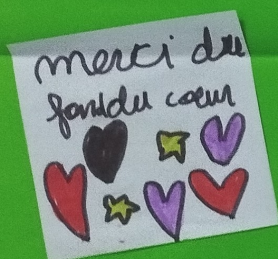 merci du
fond du coeur